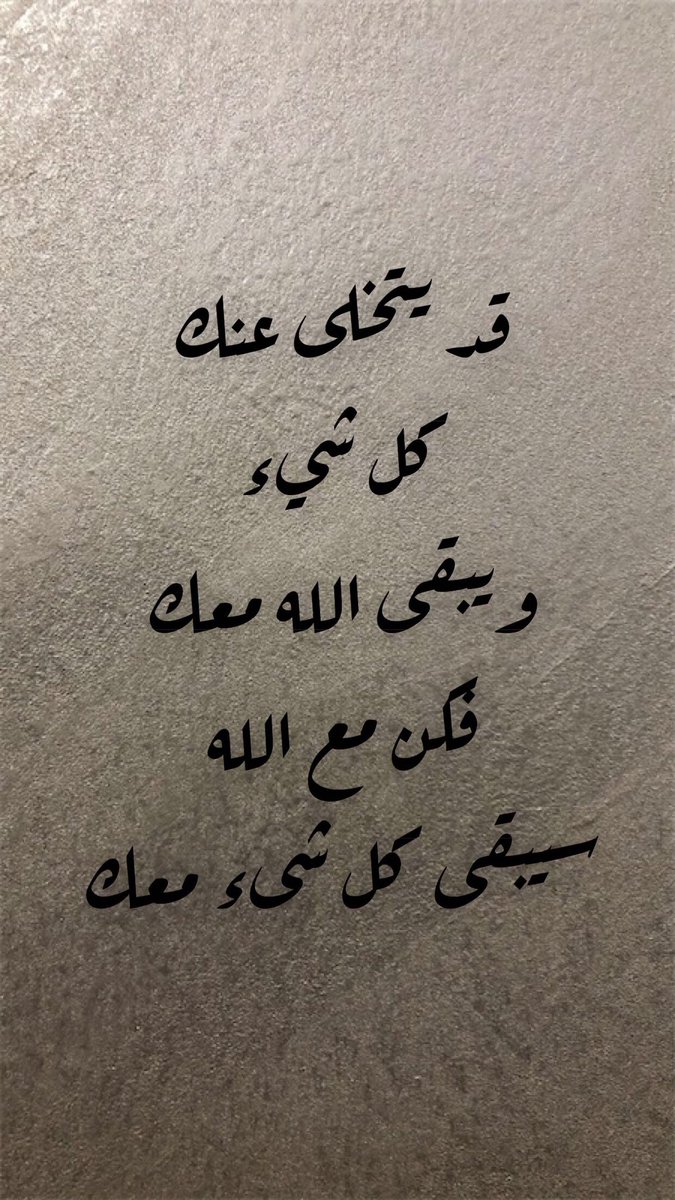 قد يتخلى عنك
كل شيء
ويبقى الله معك
فكن مع الله
سيبقى كل شىء معك